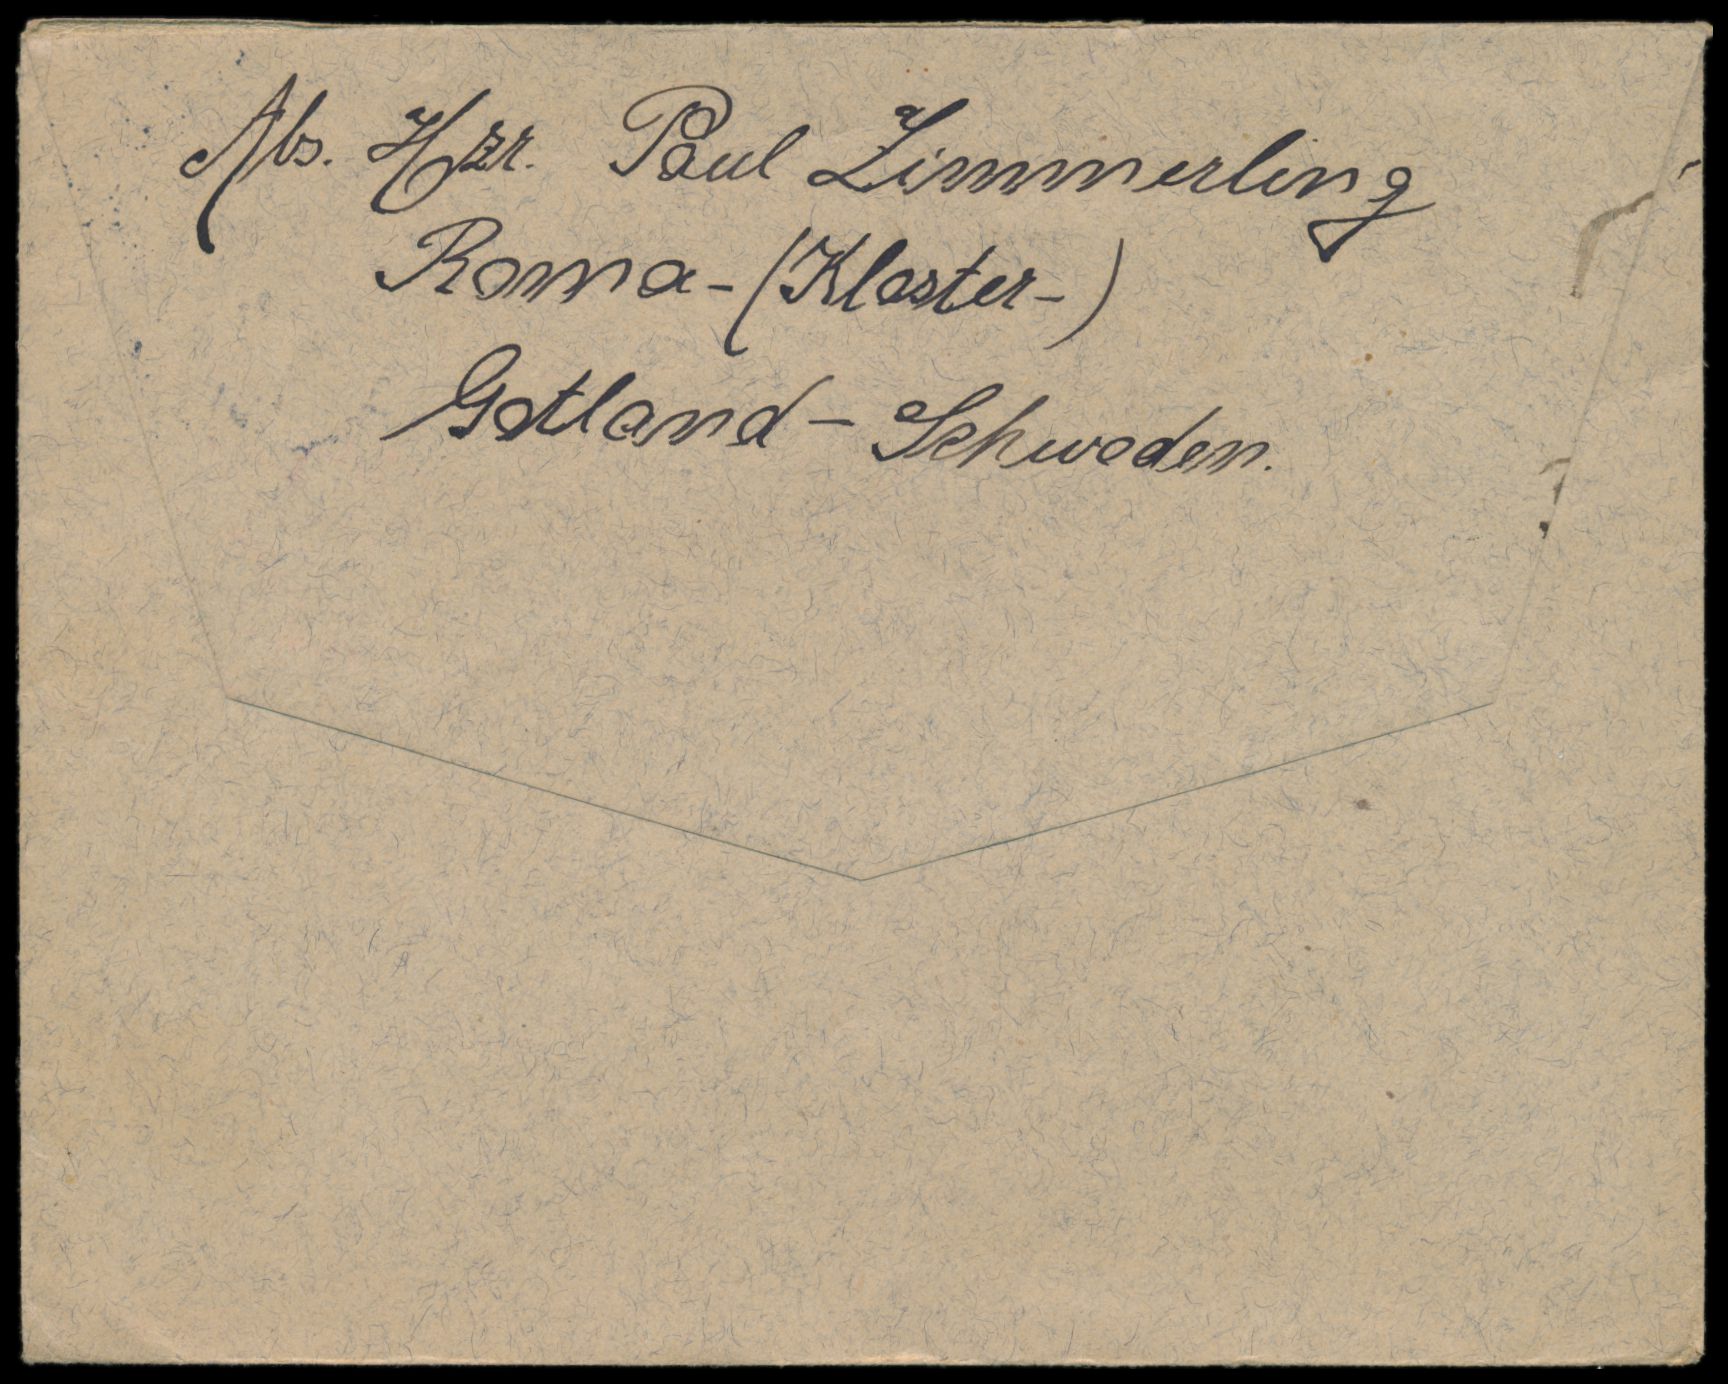 Abs. Hrr. Paul Zimmerling
Roma-(Kloster-)
Gotland - Schweden.